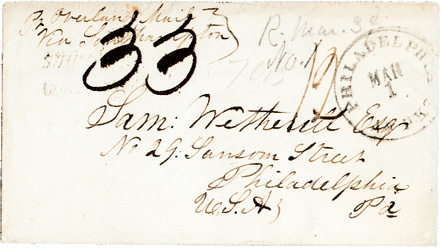 Pr Overland Mail
Via Southampton
33
R. Mar. 3d
No. 1
PHILADELPHIA
MAR
1
Sam: Wetherill Esq
No 29: Sansom Street
Philadelphia
U.S.A Pa